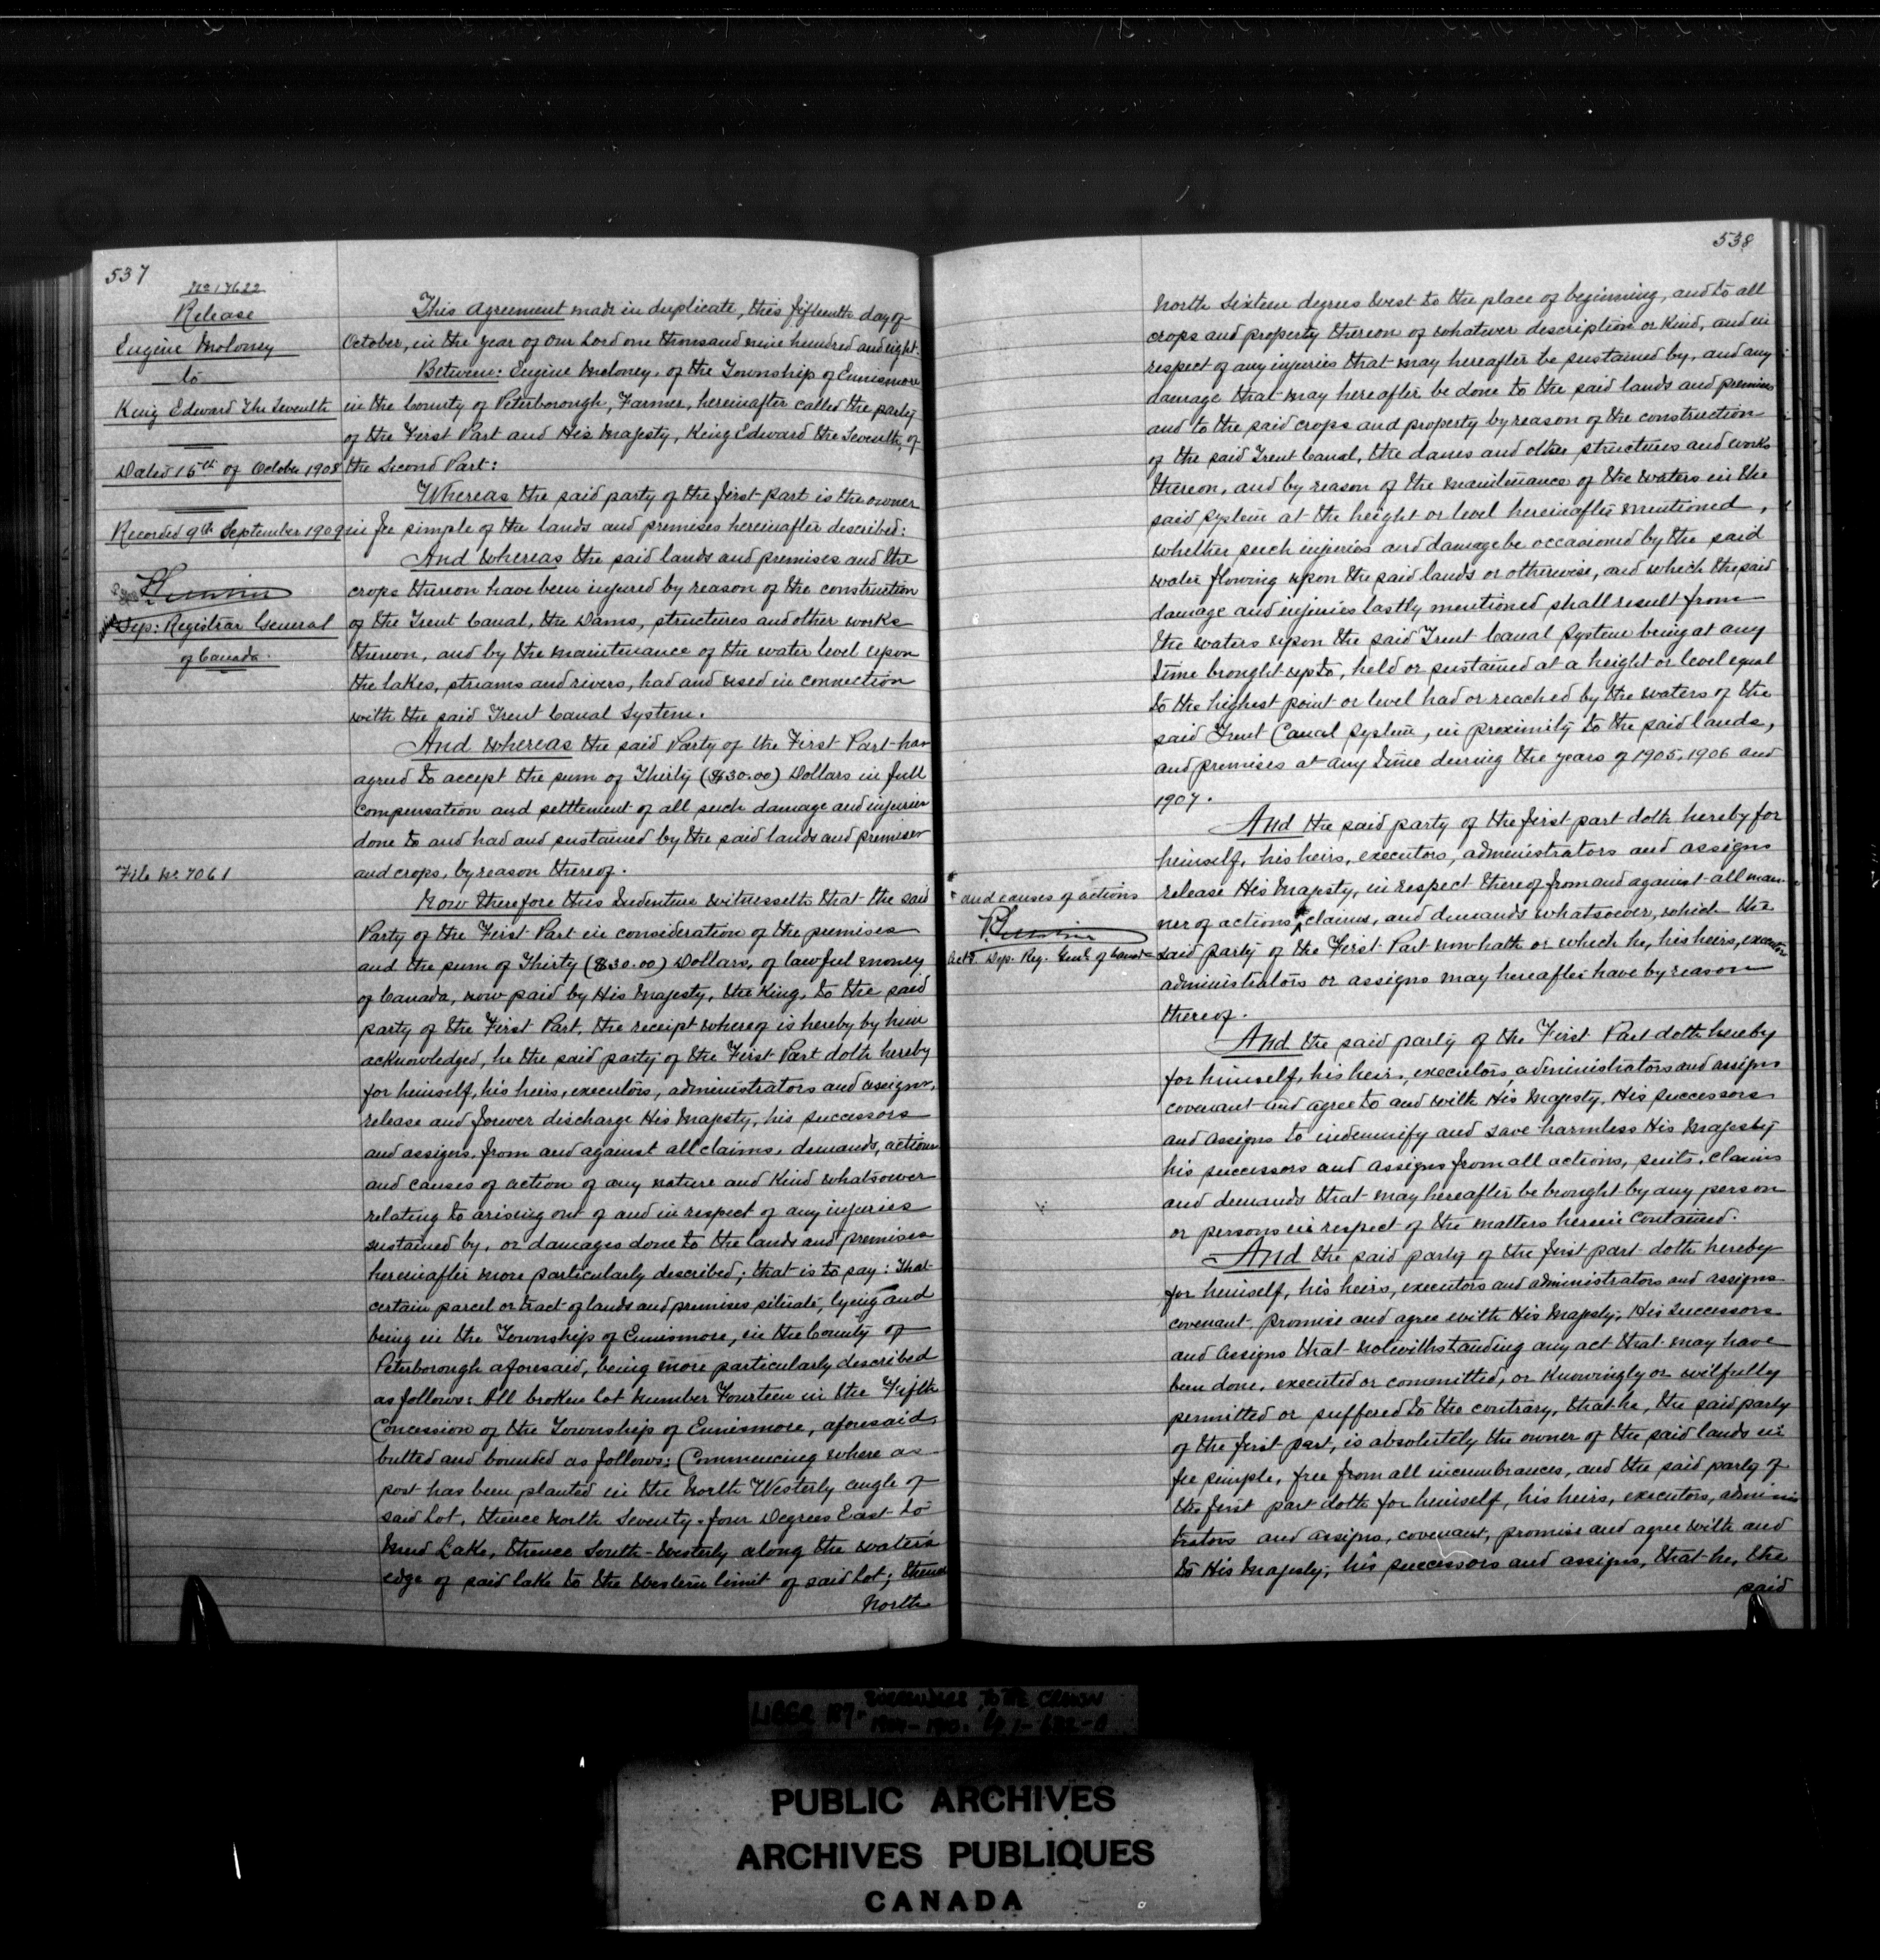 537
No 17622
Release
Eugene Moloney
to
King Edward The Seventh
Dated 15th of October 1908
Recorded 9th September 1909
Dep: Registrar General
of Canada.
File No. 7061
This Agreement made in duplicate, this fifteenth day of
October, in the year of our Lord one thousand nine hundred and eight.
Between: Eugene Moloney, of the Township of Ennismore
in the County of Peterborough, Farmer, hereinafter called the party
of the First Part and His Majesty, King Edward the Seventh, of
the Second Part:
Whereas the said party of the first part is the owner
in fee simple of the lands and premises hereinafter described:
And Whereas the said lands and premises and the
crops thereon have been injured by reason of the construction
of the Trent Canal, the Dams, structures and other works
thereon, and by the maintenance of the water level upon
the lakes, streams and rivers, had and used in connection
with the said Trent Canal System.
And Whereas the said Party of the First Part has
agreed to accept the sum of Thirty ($30.00) Dollars in full
compensation and settlement of all such damage and injuries
done to and had and sustained by the said lands and premises
and crops, by reason thereof.
Now therefore this Indenture witnesseth that the said
Party of the First Part in consideration of the premises
and the sum of Thirty ($30.00) Dollars, of lawful money
of Canada, now paid by His Majesty, the King, to the said
party of the First Part, the receipt whereof is hereby by him
acknowledged, he the said party of the First Part doth hereby
for himself, his heirs, executors, administrators and assigns,
release and forever discharge His Majesty, his successors
and assigns, from and against all claims, demands, actions
and causes of action of any nature and kind whatsoever
relating to arising out of and in respect of any injuries
sustained by, or damages done to the lands and premises
hereinafter more particularly described; that is to say: That
certain parcel or tract of lands and premises situate, lying and
being in the Township of Ennismore, in the County of
Peterborough aforesaid, being more particularly described
as follows: All broken Lot Number Fourteen in the Fifth
Concession of the Township of Ennismore, aforesaid,
butted and bounded as follows: Commencing where as
post has been planted in the North Westerly angle of
said Lot, thence North Seventy-four Degrees East to
Mud Lake, thence South-westerly along the water's
edge of said lake to the Western limit of said Lot; thence
North
538
North Sixteen degrees West to the place of beginning, and to all
crops and property thereon of whatever description or kind, and in
respect of any injuries that may hereafter be sustained by, and any
damage that may hereafter be done to the said lands and premises
and to the said crops and property by reason of the construction
of the said Trent Canal, the dams and other structures and works
thereon, and by reason of the maintenance of the waters in the
said System at the height or level hereinafter mentioned,
whether such injuries and damage be occasioned by the said
water flowing upon the said lands or otherwise, and which the said
damage and injuries lastly mentioned shall result from
the waters upon the said Trent Canal System being at any
time brought up to, held or sustained at a height or level equal
to the highest point or level had or reached by the waters of the
said Trent Canal System, in proximity to the said lands,
and premises at any time during the years of 1905, 1906 and
1907.
And the said party of the first part doth hereby for
himself, his heirs, executors, administrators and assigns
release His Majesty, in respect thereof from and against all man-
ner of actions, claims, and demands whatsoever, which the
said party of the First Part now hath or which he, his heirs, executors
administrators or assigns may hereafter have by reason
thereof.
and causes of actions
Actg. Dep. Reg. Genl. of Canada
And the said party of the First Part doth hereby
for himself, his heirs, executors, administrators and assigns
covenant and agree to and with His Majesty, His successors
and assigns to indemnify and save harmless His Majesty
his successors and assigns from all actions, suits, claims
and demands that may hereafter be brought by any person
or persons in respect of the matters herein contained.
And the said party of the first part doth hereby
for himself, his heirs, executors and administrators and assigns
covenant, promise and agree with His Majesty, His Successors
and Assigns that notwithstanding any act that may have
been done, executed or committed, or knowingly or wilfully
permitted or suffered to the contrary, that he, the said party
of the first part, is absolutely the owner of the said lands in
fee simple, free from all incumbrances, and the said party of
the first part doth for himself, his heirs, executors, adminis
trators and assigns, covenant, promise and agree with and
to His Majesty, his successors and assigns, that he, the
said
LIBER 127- SURRENDER TO THE CROWN
PUBLIC ARCHIVES
ARCHIVES PUBLIQUES
CANADA